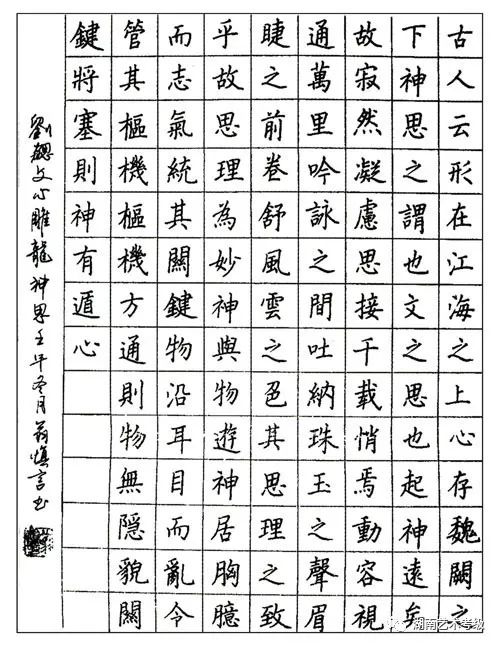 古人云形在江海之上心存魏闕之
下神思之謂也文之思也起神遠矣
故寂然凝慮思接千載悄焉動容視
通萬里吟詠之間吐納珠玉之聲眉
睫之前卷舒風雲之色其思理之致
乎故思理為妙神與物遊神居胸臆
而志氣統其關鍵物沿耳目而亂令
管其樞機樞機方通則物無隱貌關
鍵將塞則神有遁心
劉勰文心雕龍神思壬午冬月翁慎言书
湖南艺术考级